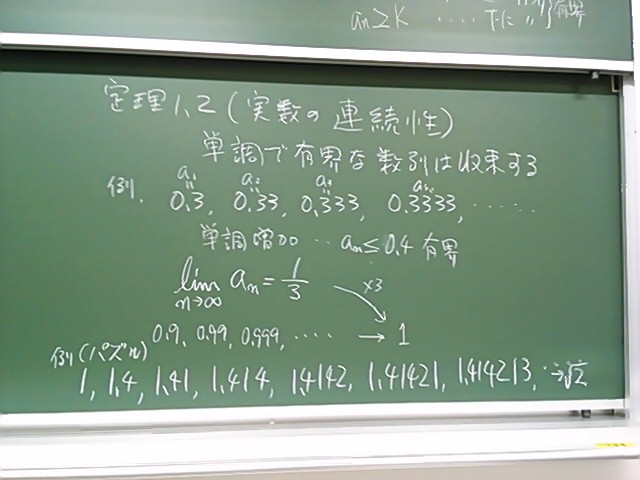 an≧K ‥‥ 下に 〃 有界
定理1.2(実数の連続性)
単調で有界な数列は収束する
a₁ a₂ a₃
例. 0.3, 0.33, 0.333, 0.3333, ‥‥‥
単調増加 ‥ an≦0.4 有界
lim n→∞ an = 1/3 ×3
0.9, 0.99, 0.999, ‥‥ → 1
例(パズル)
1, 1.4, 1.41, 1.414, 1.4142, 1.41421, 1.414213, ‥→√2